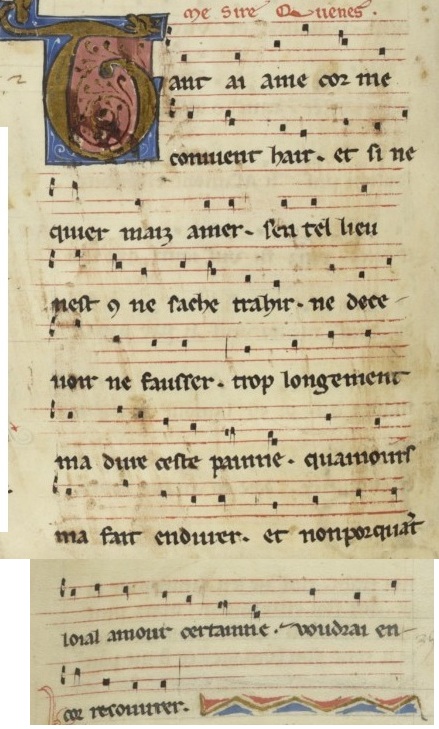 me sire Quenes.
Tant ai ame cor me
couuient hair. et si ne
quier maiz amer. sen tel lieu
nest ꝯ ne sache trahir. ne dece
uoir ne fausser. trop longement
ma dure ceste painne. quamours
ma fait endurer. et nonporquāt
loial amour certainne. voudrai en
cor recouurer.